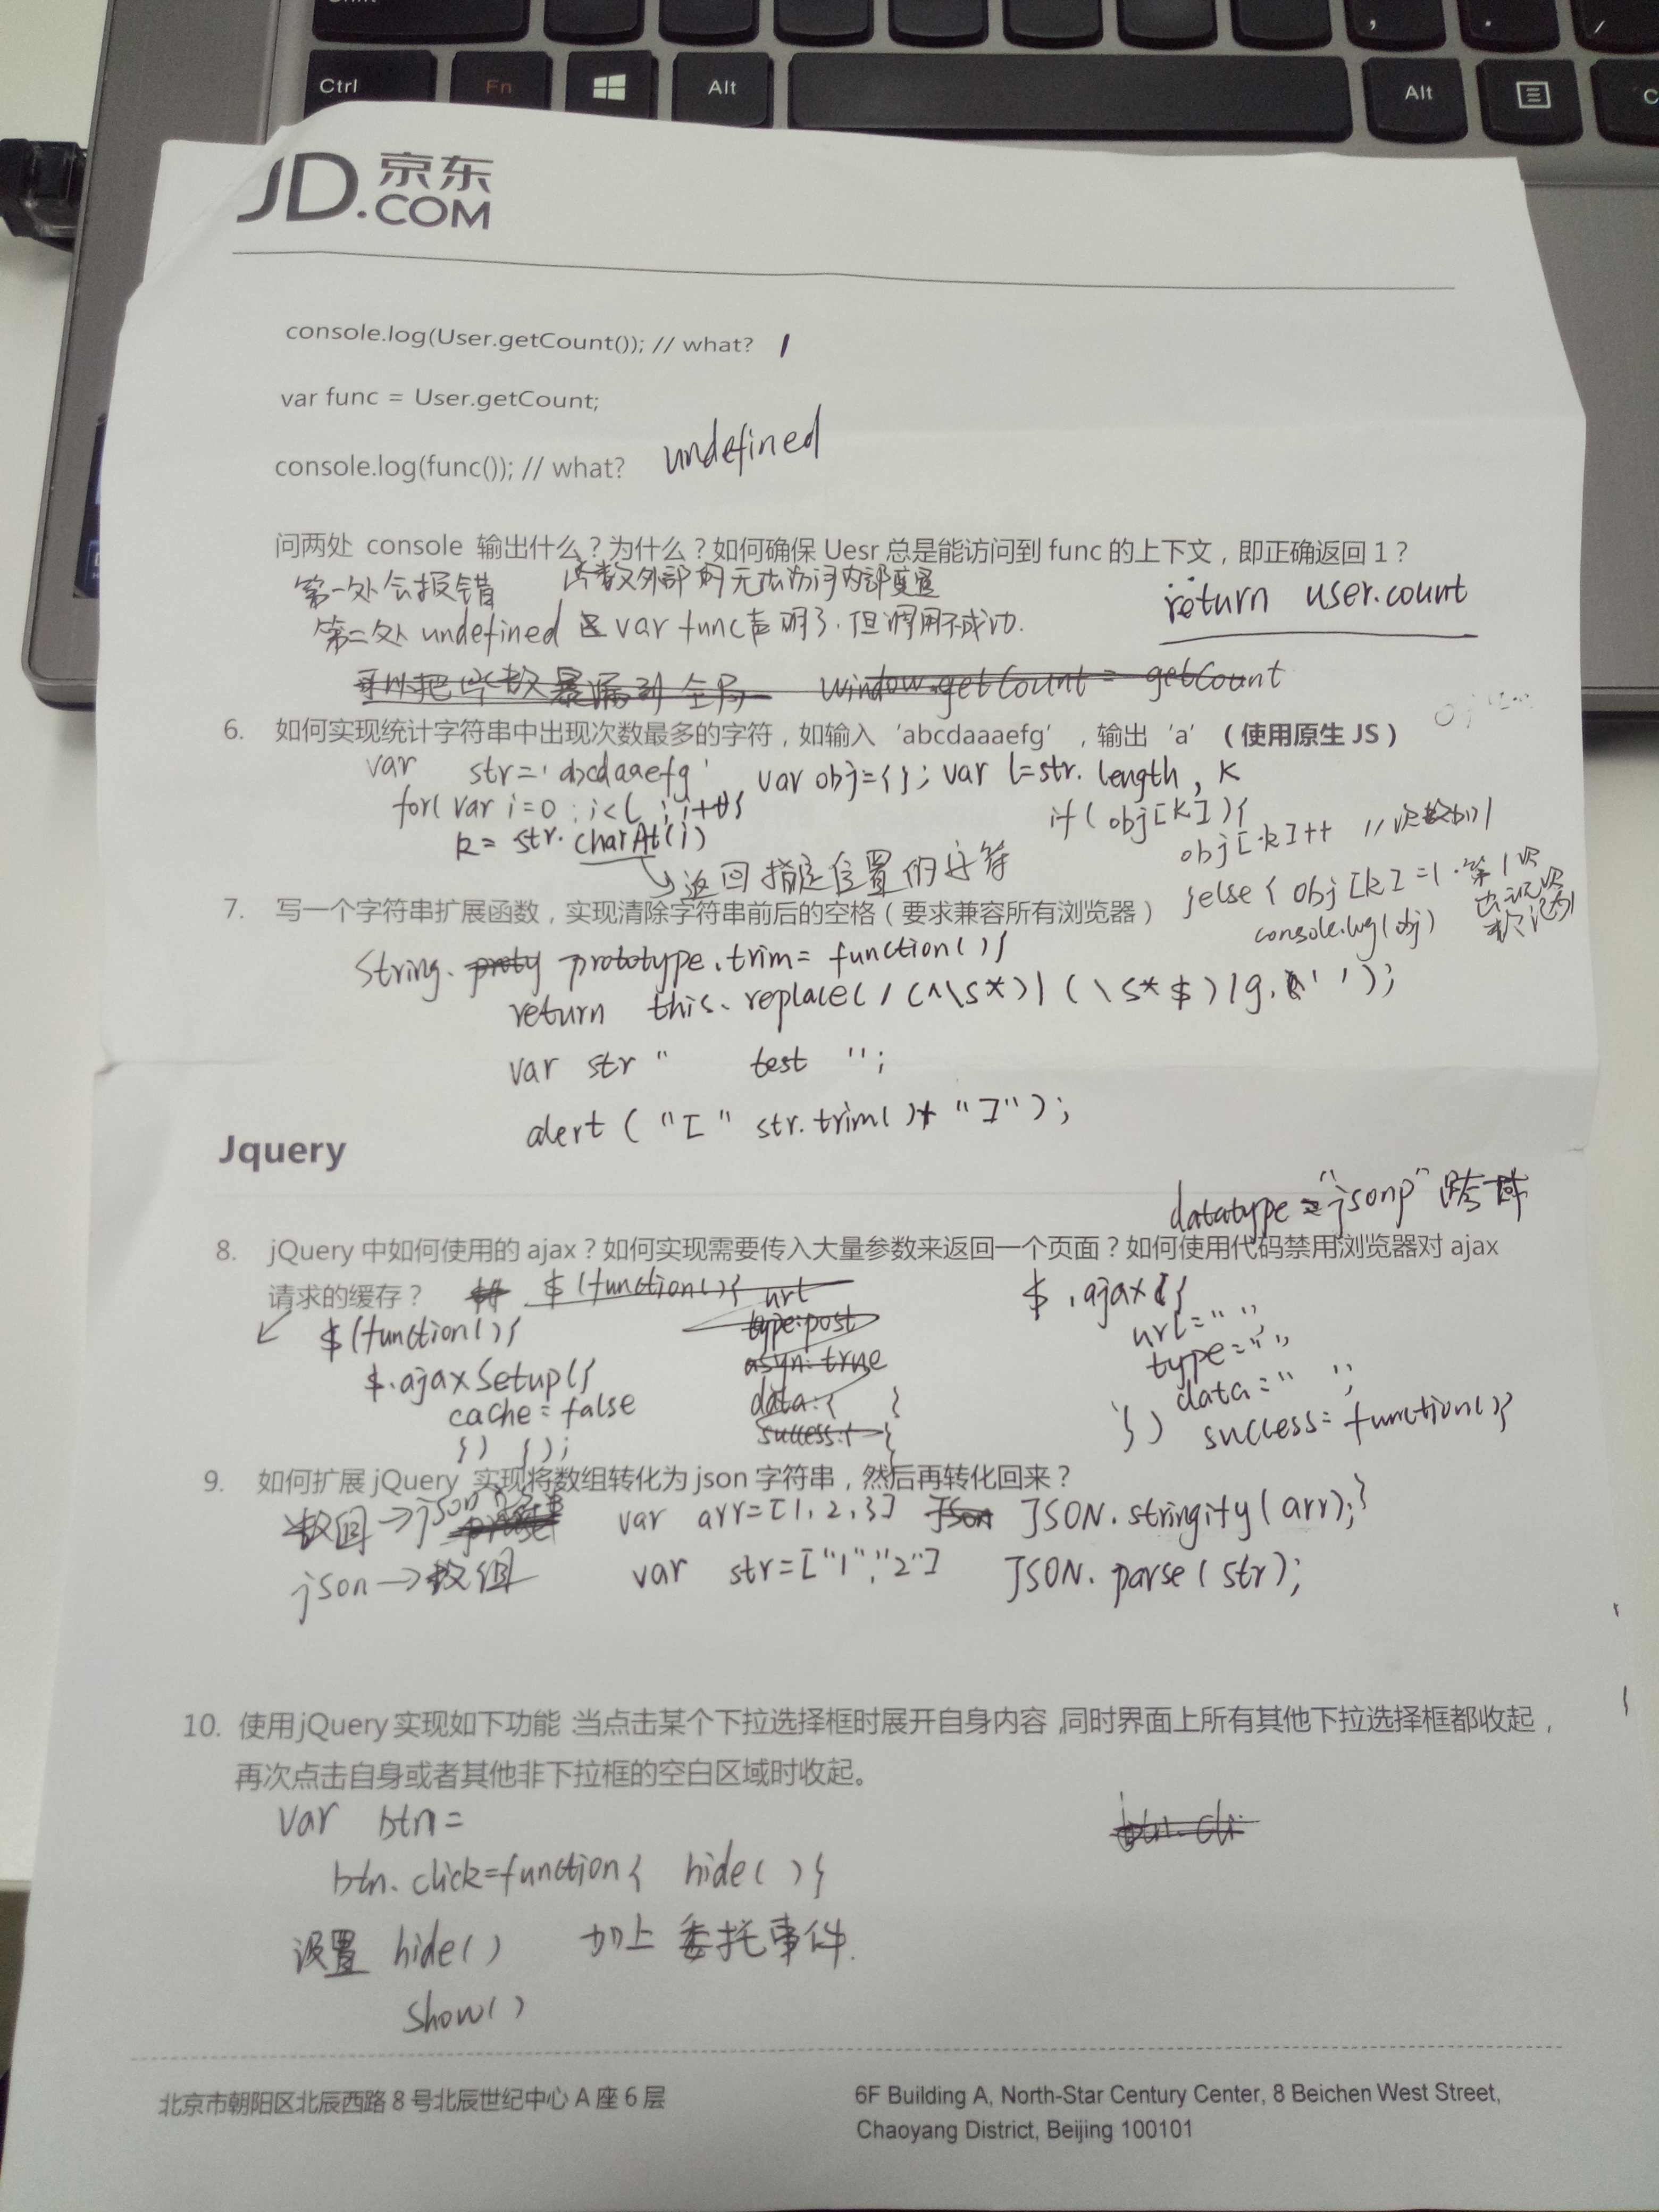 Ctrl Fn Alt Alt
JD.京东
COM
console.log(User.getCount()); // what? 1
var func = User.getCount;
console.log(func()); // what? undefined
问两处 console 输出什么？为什么？如何确保 Uesr 总是能访问到 func 的上下文，即正确返回 1？
第一处会报错 函数外部的无法访问内部变量
return user.count
第二处 undefined var func声明了.但调用不成功.
可以把些数暴漏到全局 window.getCount = getCount
6. 如何实现统计字符串中出现次数最多的字符，如输入 'abcdaaaefg' ，输出 'a' （使用原生 JS）
var str='abcdaaefg' var obj={}; var l=str.length, k
for(var i=0; i<l; i++){
k= str.charAt(i)
返回指定位置的字符
if(obj[k]){
obj[k]++ //次数加1
}else{ obj[k]=1 第1次
console.log(obj)
7. 写一个字符串扩展函数，实现清除字符串前后的空格（要求兼容所有浏览器）
String. prototype.trim= function(){
return this.replace(/(^\s*)|(\s*$)/g, '');
var str " test ";
alert("[" str.trim()+ "]");
Jquery
datatype="jsonp" 跨域
8. jQuery 中如何使用的 ajax？如何实现需要传入大量参数来返回一个页面？如何使用代码禁用浏览器对 ajax
请求的缓存？
$(function(){ url
type:post
asyn:true
data:{ }
success:{
$(function(){
$.ajaxSetup({
cache=false
}) });
$.ajax({
url="",
type="",
data=" ";
success=function(){
})
9. 如何扩展 jQuery 实现将数组转化为 json 字符串，然后再转化回来？
数组→json字符串 var arr=[1,2,3] JSON JSON.stringity(arr);}
json→数组 var str=["1","2"] JSON.parse(str);
10. 使用 jQuery 实现如下功能:当点击某个下拉选择框时展开自身内容,同时界面上所有其他下拉选择框都收起，
再次点击自身或者其他非下拉框的空白区域时收起。
var btn=
btn.cli
btn.click=function{ hide()}
设置 hide() 加上 委托事件.
show()
北京市朝阳区北辰西路 8 号北辰世纪中心 A 座 6 层
6F Building A, North-Star Century Center, 8 Beichen West Street,
Chaoyang District, Beijing 100101